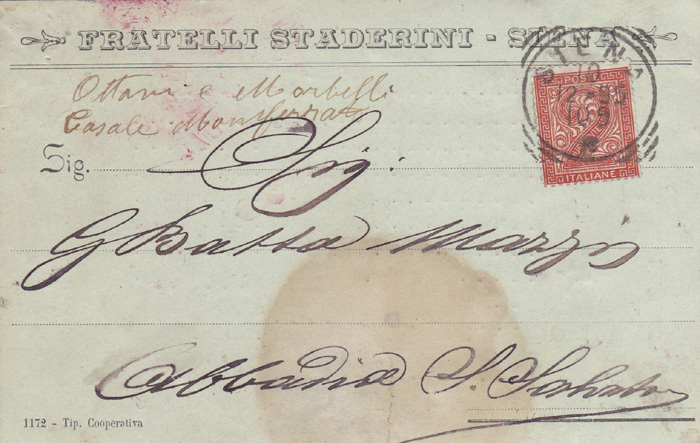 FRATELLI STADERINI - SIENA
Ottavi e Morbelli
Casale Monferrato
SIENA
POSTE
ITALIANE
Sig.
Sig.
G Batta
Abbadia S. Salvatore
1172 - Tip. Cooperativa